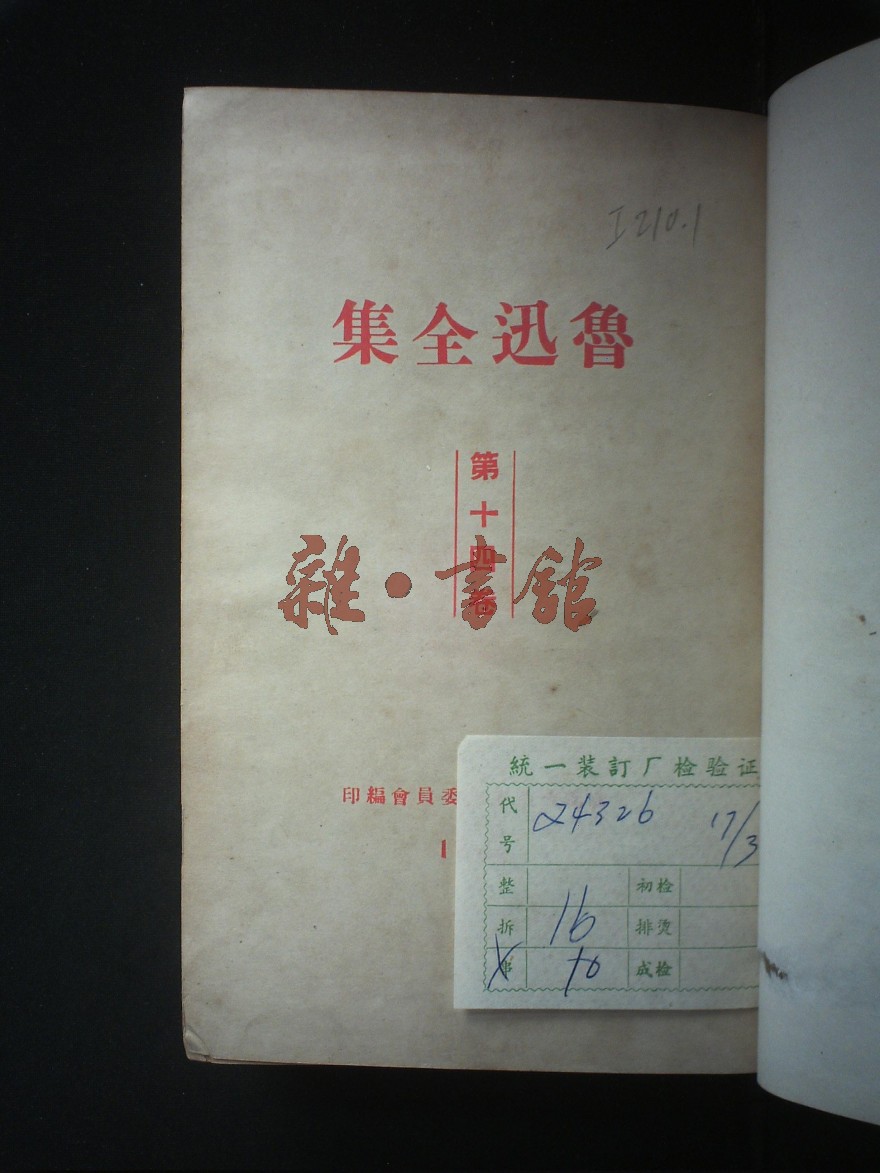 I210.1
魯迅全集
第十四卷
雜·書館
委員會編印
統一装訂厂检验证
代号 24326 17/3
整 初检
拆 16 排烫
串 10 成检